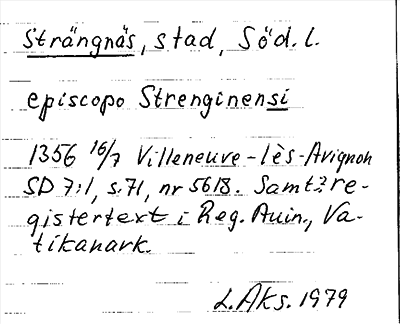 Strängnäs, stad, Söd. l.
episcopo Strenginensi
1356 16/7 Villeneuve-lès-Avignon
SD 7:1, s. 71, nr 5618. Samt? re-
gistertext i Reg. Auin., Va-
tikanark.
L. Aks. 1979